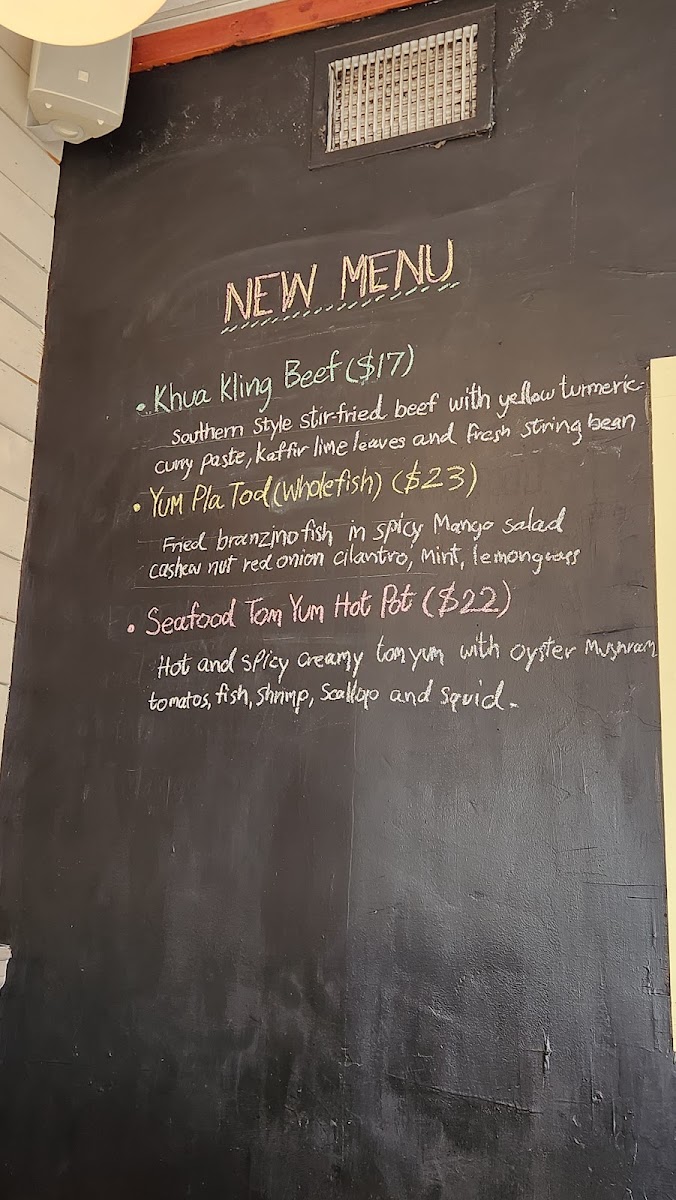 NEW MENU
• Khua Kling Beef ($17)
Southern Style stir-fried beef with yellow turmeric-
curry paste, kaffir lime leaves and fresh string bean
• YUM Pla Tod (Wholefish) ($23)
Fried branzino fish in spicy Mango salad
cashew nut red onion cilantro, Mint, lemongrass
• Seafood Tom Yum Hot Pot ($22)
Hot and spicy creamy tom yum with oyster Mushroom
tomatos, fish, shrimp, scallop and squid.